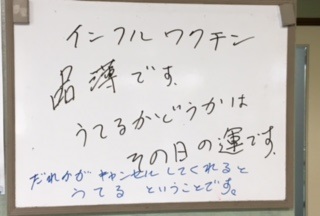 インフルワクチン
品薄です.
うてるかどうかは
その日の運です.
だれかがキャンセルしてくれると
うてる ということです。